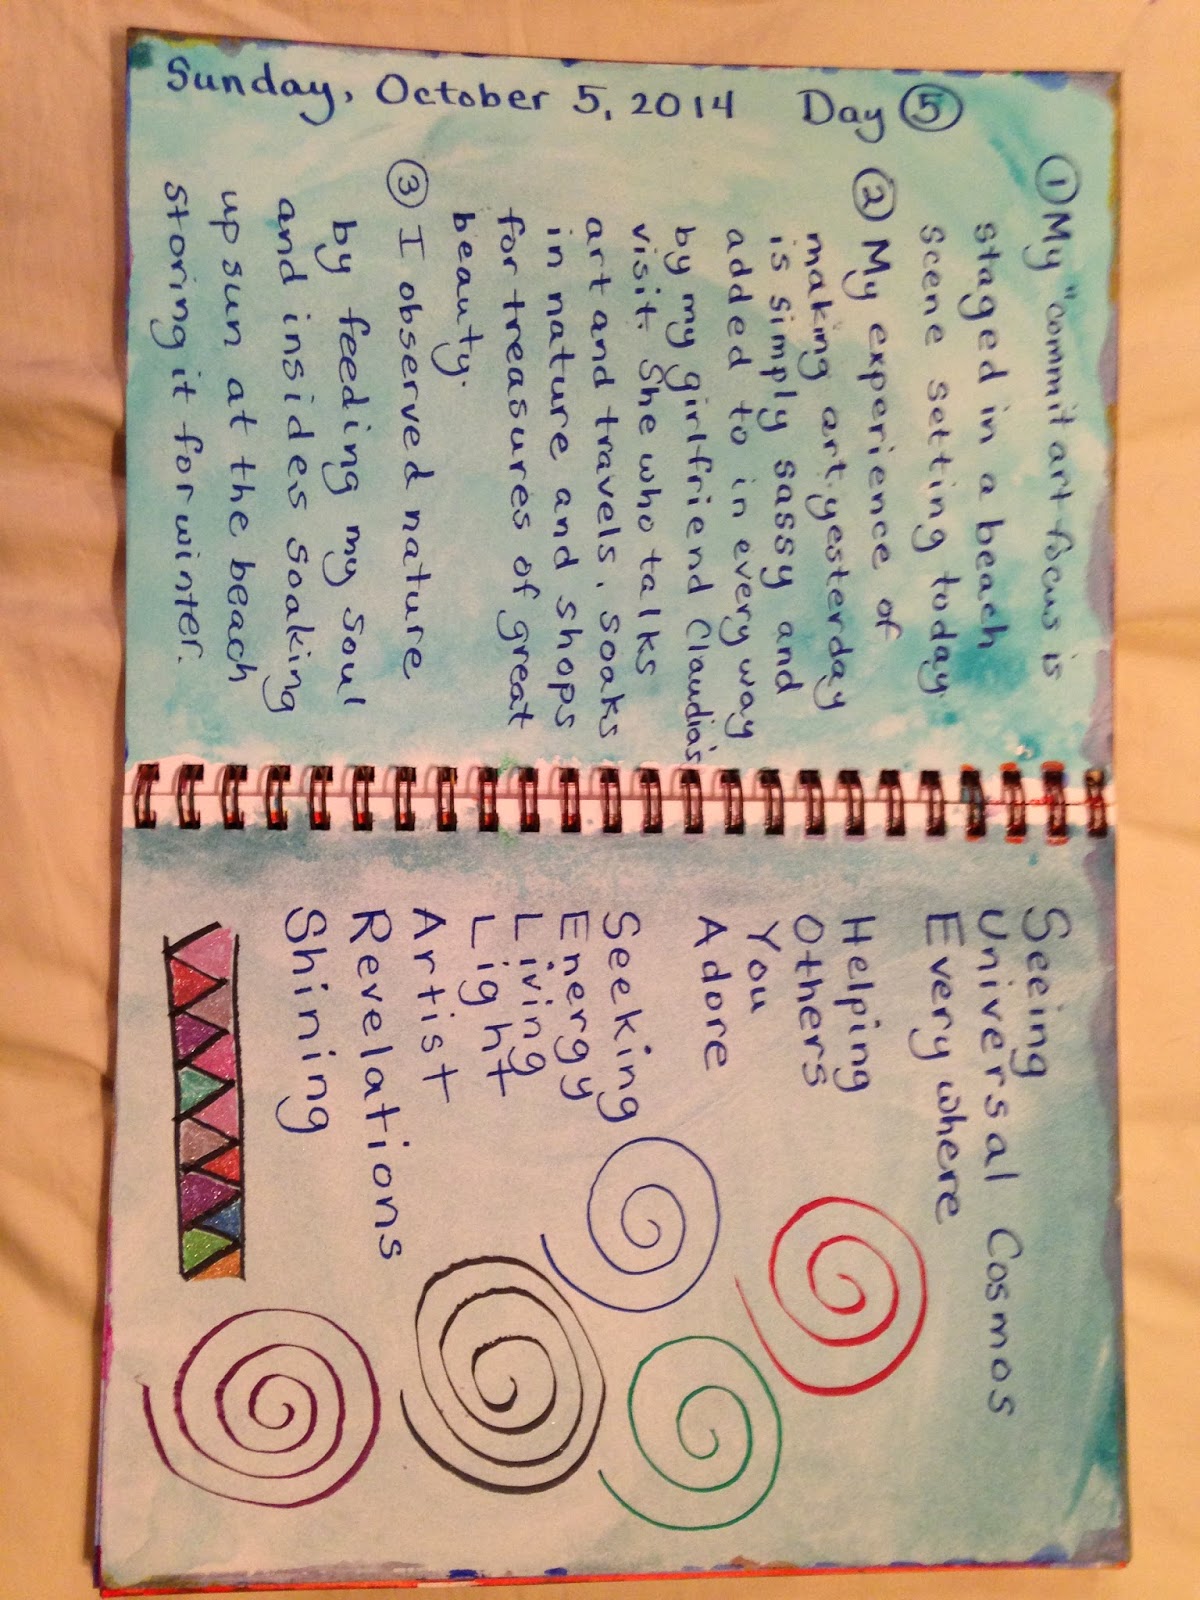 Sunday, October 5, 2014 Day 5
① My "commit art focus is
staged in a beach
scene setting today.
② My experience of
making art yesterday
is simply sassy and
added to in every way
by my girlfriend Claudia's
visit. She who talks
art and travels, soaks
in nature and shops
for treasures of great
beauty.
③ I observed nature
by feeding my soul
and insides soaking
up sun at the beach
storing it for winter.
Seeing
Universal Cosmos
Everywhere
Helping
Others
You
Adore
Seeking
Energy
Living
Light
Artist
Revelations
Shining